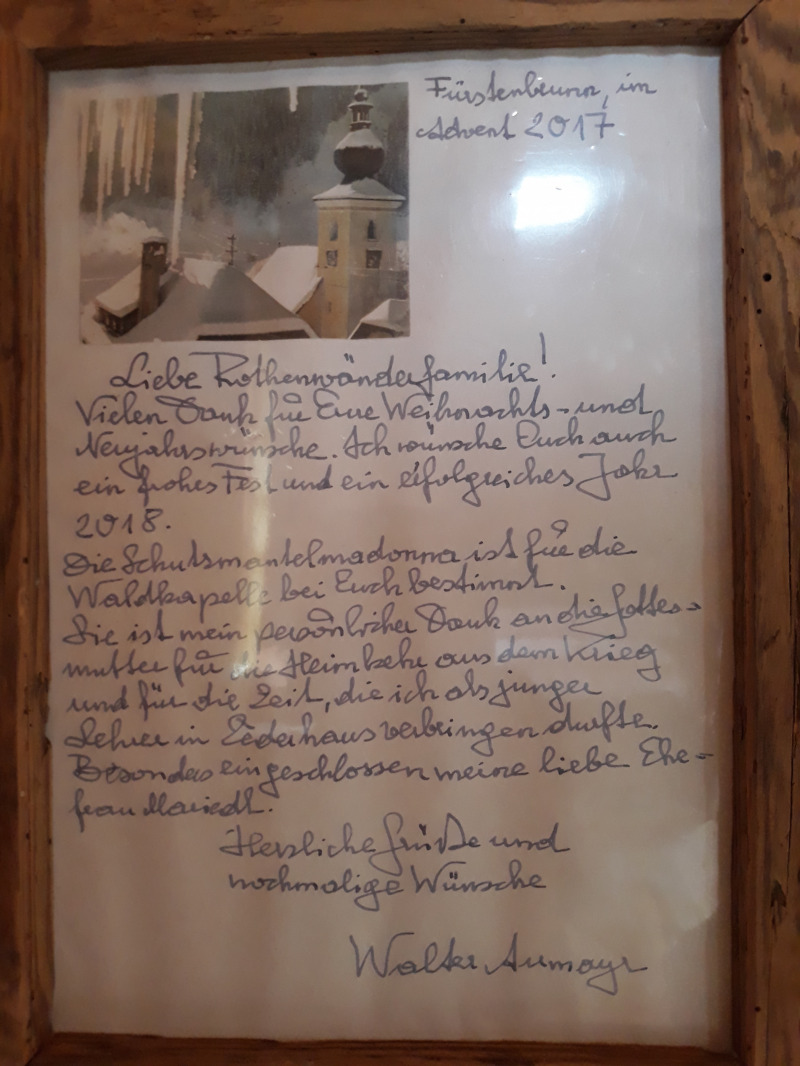 Fürstenbrunn, im
Advent 2017
Liebe Rothenwänderfamilie!
Vielen Dank für Eure Weihnachts- und
Neujahrswünsche. Ich wünsche Euch auch
ein frohes Fest und ein erfolgreiches Jahr
2018.
Die Schutzmantelmadonna ist für die
Waldkapelle bei Euch bestimmt.
Sie ist mein persönlicher Dank an die Gottes-
mutter für die Heimkehr aus dem Krieg
und für die Zeit, die ich als junger
Lehrer in Zederhaus verbringen durfte.
Besonders eingeschlossen meine liebe Ehe-
frau Mariedl.
Herzliche Grüße und
nochmalige Wünsche
Walter Aumayr